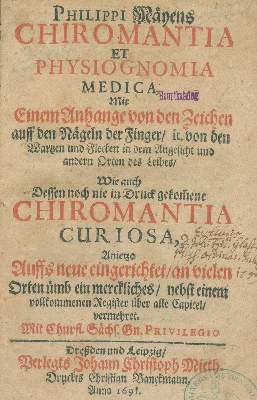 PHILIPPI Mäyens
CHIROMANTIA
ET
PHYSIOGNOMIA
MEDICA
Mit
Einem Anhange von den Zeichen
auff den Nägeln der Finger/ ic. von den
Wartzen und Flecken in dem Angesicht und
andern Orten des Leibes/
Wie auch
Dessen noch nie in Druck gekom̃ene
CHIROMANTIA
CURIOSA,
Anietzo
Auffs neue eingerichtet/ an vielen
Orten ümb ein merckliches/ nebst einem
vollkommenen Register über alle Capitel/
vermehret.
Mit Churfl. Sächs. Gn. PRIVILEGIO
Dreßden und Leipzig/
Verlegts Johann Christoph Mieth.
Druckts Christian Banckmann.
Anno 1691.